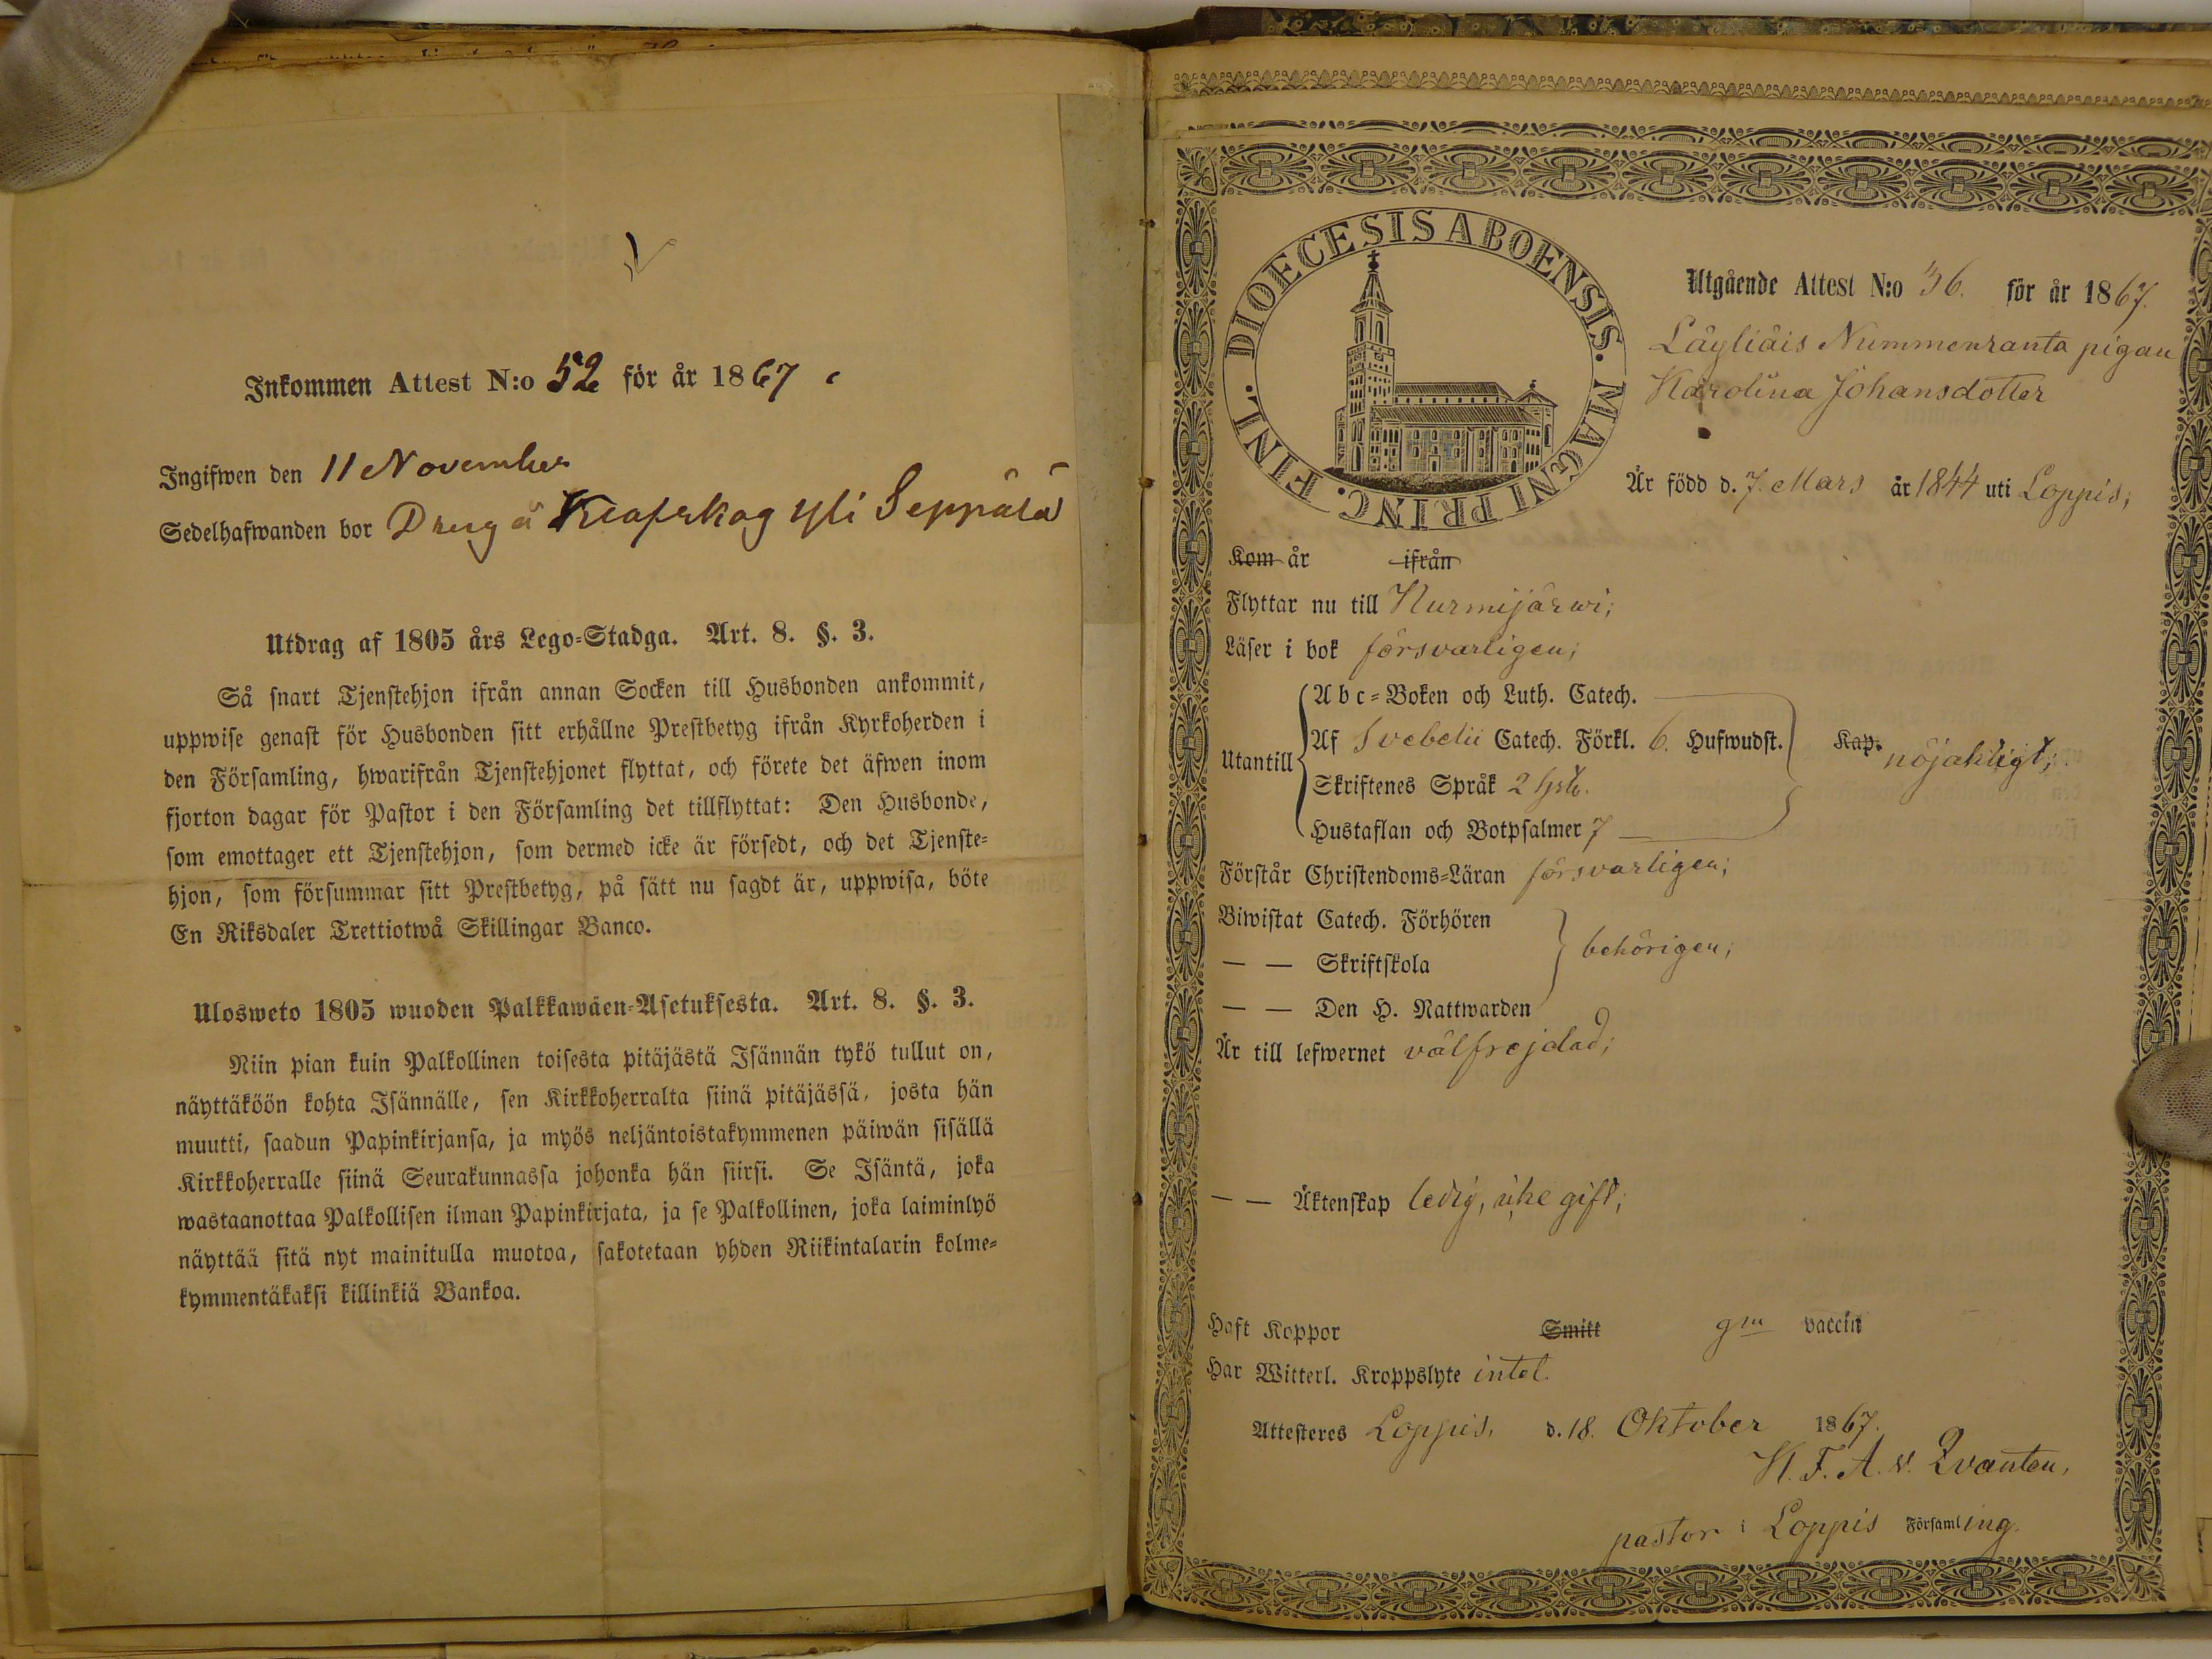 Inkommen Attest N:o 52 för år 1867
Ingifwen den 11 November
Sedelhafwanden bor Dreng å Klafskog Yli Seppälä
Utdrag af 1805 års Lego-Stadga. Art. 8. §. 3.
Så snart Tjenstehjon ifrån annan Socken till Husbonden ankommit,
uppwise genast för Husbonden sitt erhållne Prestbetyg ifrån Kyrkoherden i
den Församling, hwarifrån Tjenstehjonet flyttat, och förete det äfwen inom
fjorton dagar för Pastor i den Församling det tillflyttat: Den Husbonde,
som emottager ett Tjenstehjon, som dermed icke är försedt, och det Tjenste-
hjon, som försummar sitt Prestbetyg, på sätt nu sagdt är, uppwisa, böte
En Riksdaler Trettiotwå Skillingar Banco.
Ulosweto 1805 wuoden Palkkawäen-Asetuksesta. Art. 8. §. 3.
Niin pian kuin Palkollinen toisesta pitäjästä Isännän tykö tullut on,
näyttäköön kohta Isännälle, sen Kirkkoherralta siinä pitäjässä, josta hän
muutti, saadun Papinkirjansa, ja myös neljäntoistakymmenen päiwän sisällä
Kirkkoherralle siinä Seurakunnassa johonka hän siirsi. Se Isäntä, joka
wastaanottaa Palkollisen ilman Papinkirjata, ja se Palkollinen, joka laiminlyö
näyttää sitä nyt mainitulla muotoa, sakotetaan yhden Riikintalarin kolme-
kymmentäkaksi killinkiä Bankoa.
DIOECESIS ABOENSIS. MAGNI PRINC. FINL.
Utgående Attest N:o 36. för år 1867.
Läyliäis Nummenranta pigan
Karolina Johansdotter
Är född d. 7. Mars år 1844 uti Loppis;
Kom år ifrån
Flyttar nu till Nurmijärwi;
Läser i bok försvarligen;
Utantill
Abc-Boken och Luth. Catech.
Af Svebelii Catech. Förkl. 6. Hufwudst. Kap. nöjaktigt;
Skriftenes Språk 2
Hustaflan och Botpsalmer 7
Förstår Christendoms-Läran försvarligen;
Biwistat Catech. Förhören
— — Skriftskola behörigen;
— — Den H. Nattwarden
Är till lefwernet välfrejdad;
— — Äktenskap ledig, icke gift;
Haft Koppor Smitt gm vaccin
Har Witterl. Kroppslyte intet.
Attesteres Loppis, d. 18. Oktober 1867.
K. F. A. v. Qvanten,
pastor i Loppis Församling.